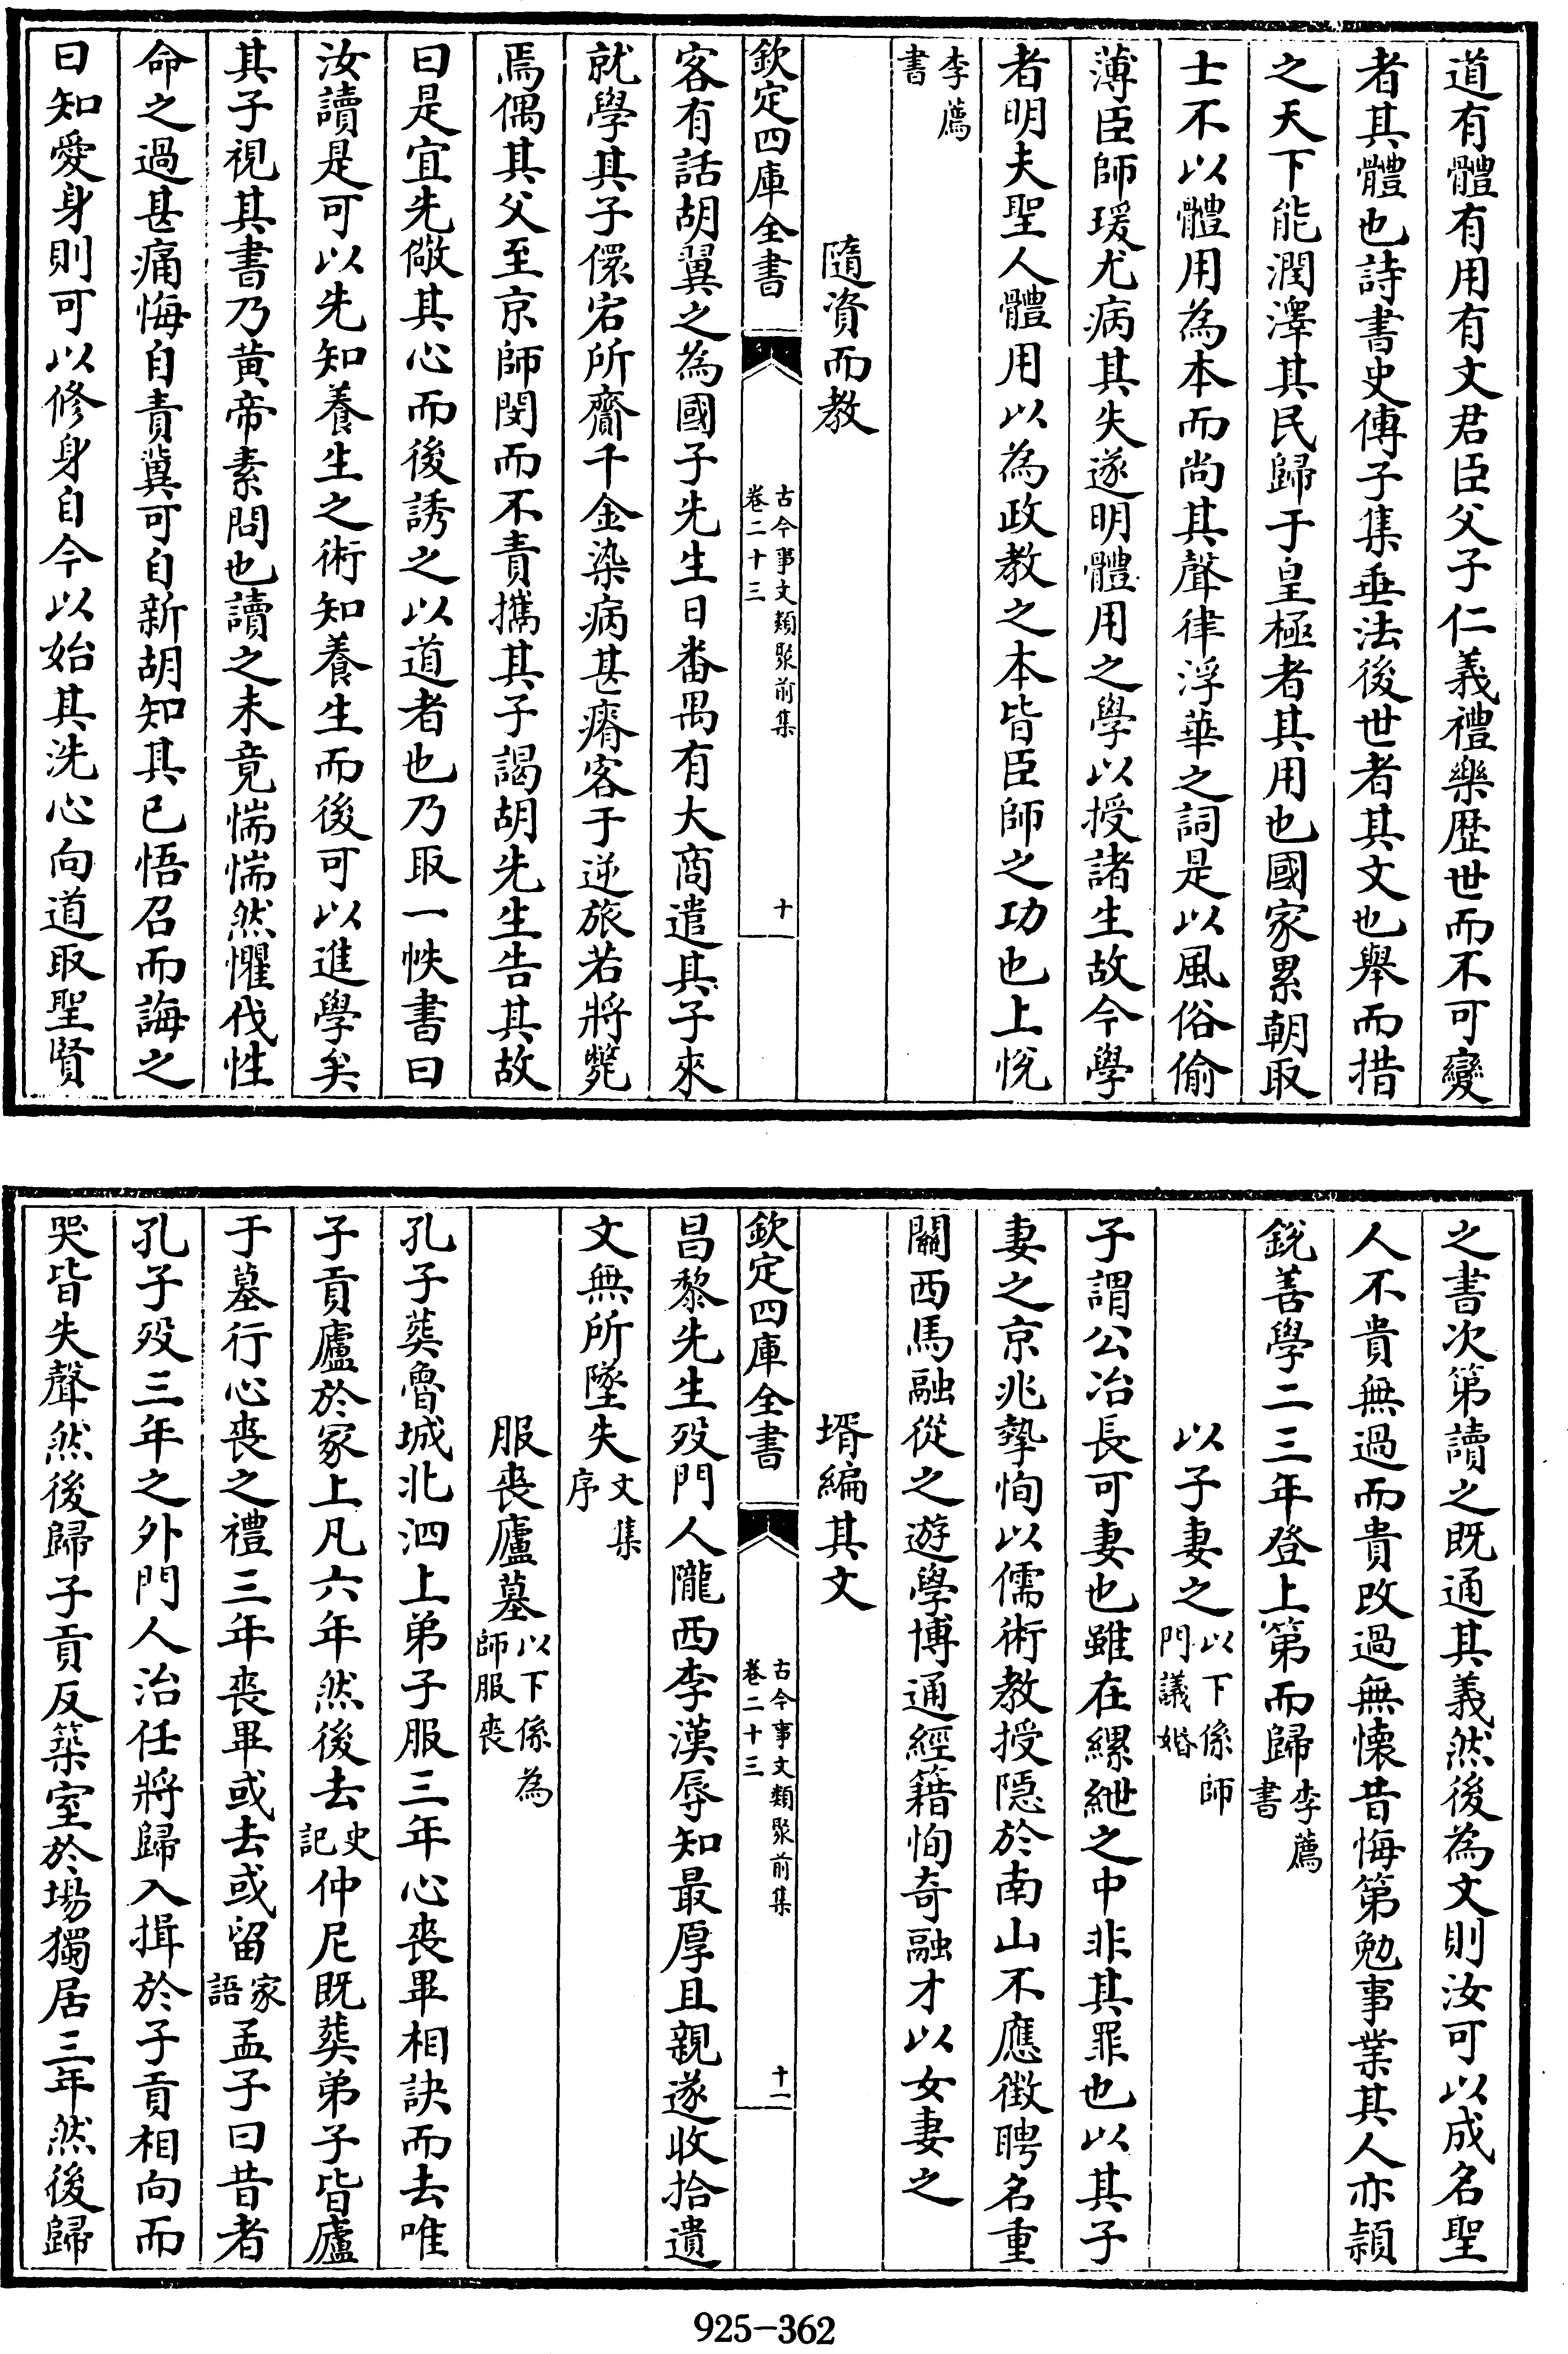 道有體有用有文君臣父子仁義禮樂歷世而不可變
者其體也詩書史傳子集垂法後世者其文也舉而措
之天下能潤澤其民歸于皇極者其用也國家累朝取
士不以體用為本而尚其聲律浮華之詞是以風俗偷
薄臣師瑗尤病其失遂明體用之學以授諸生故今學
者明夫聖人體用以為政教之本皆臣師之功也上悅
李廌
書
隨資而教
欽定四庫全書
古今事文類聚前集
卷二十三
十
客有話胡翼之為國子先生日番禺有大商遣其子來
就學其子儇宕所齎千金染病甚瘠客于逆旅若將斃
焉偶其父至京師閔而不責攜其子謁胡先生告其故
曰是宜先儆其心而後誘之以道者也乃取一帙書曰
汝讀是可以先知養生之術知養生而後可以進學矣
其子視其書乃黃帝素問也讀之未竟惴惴然懼伐性
命之過甚痛悔自責冀可自新胡知其已悟召而誨之
曰知愛身則可以修身自今以始其洗心向道取聖賢
之書次第讀之既通其義然後為文則汝可以成名聖
人不貴無過而貴改過無懷昔悔第勉事業其人亦穎
銳善學二三年登上第而歸李廌
書
以子妻之以下係師
門議婚
子謂公冶長可妻也雖在縲絏之中非其罪也以其子
妻之京兆摯恂以儒術教授隱於南山不應徵聘名重
關西馬融從之遊學博通經籍恂奇融才以女妻之
壻編其文
欽定四庫全書
古今事文類聚前集
卷二十三
十一
昌黎先生歿門人隴西李漢辱知最厚且親遂收拾遺
文無所墜失文集
序
服喪廬墓以下係為
師服喪
孔子葬魯城北泗上弟子服三年心喪畢相訣而去唯
子貢廬於冢上凡六年然後去史
記仲尼既葬弟子皆廬
于墓行心喪之禮三年喪畢或去或留家
語孟子曰昔者
孔子歿三年之外門人治任將歸入揖於子貢相向而
哭皆失聲然後歸子貢反築室於場獨居三年然後歸
925-362